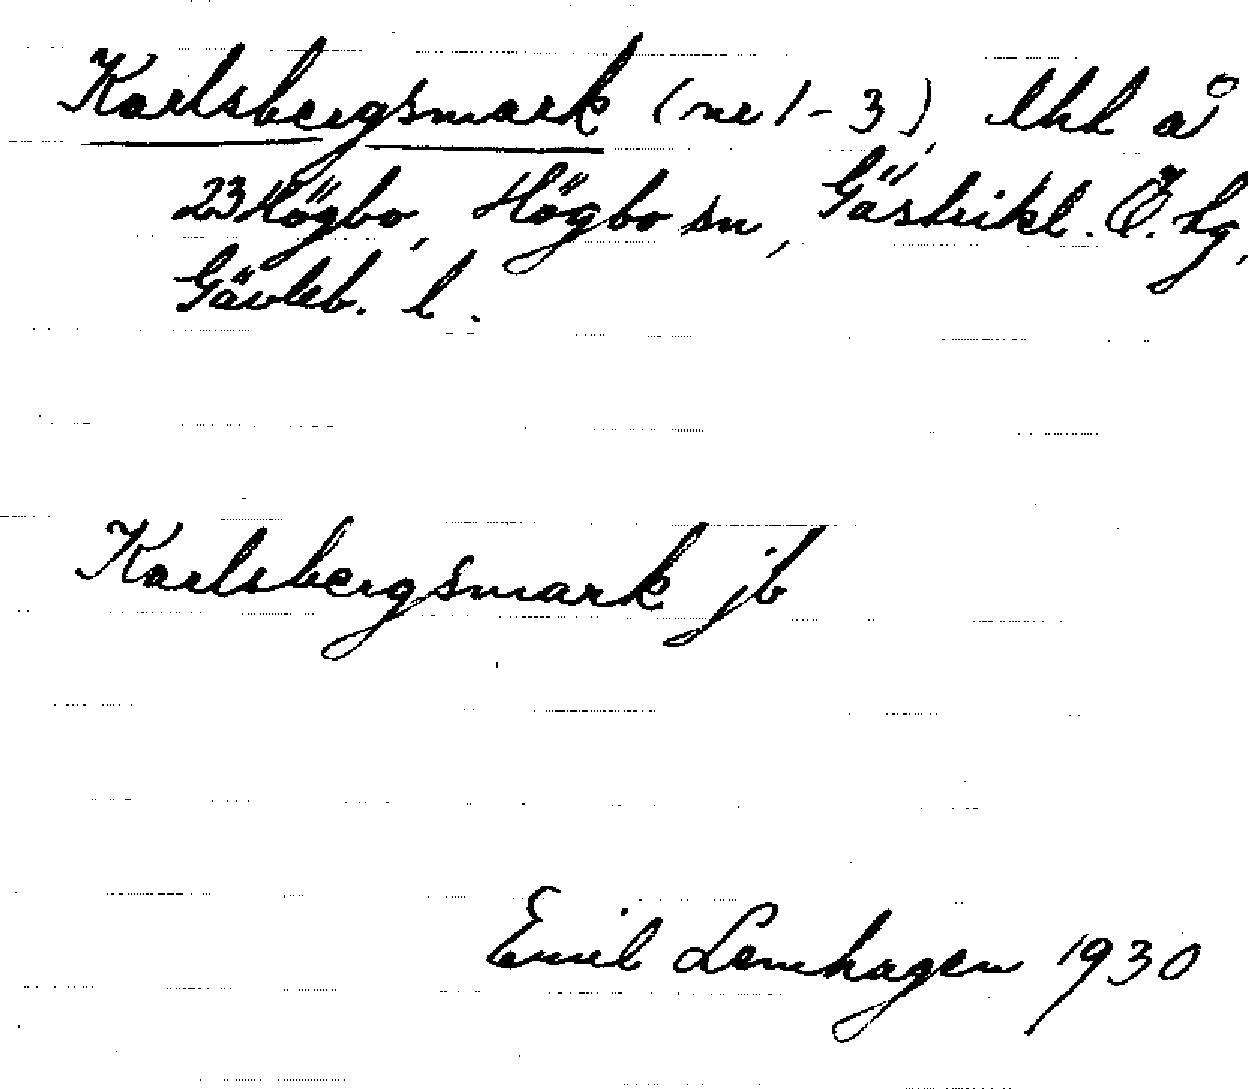 Karlsbergsmark (nr 1-3), lhl å
23 Högbo, Högbo sn, Gästrikl. Ö. tg,
Gävleb. l.
Karlsbergsmark jb
Emil Lemhagen 1930